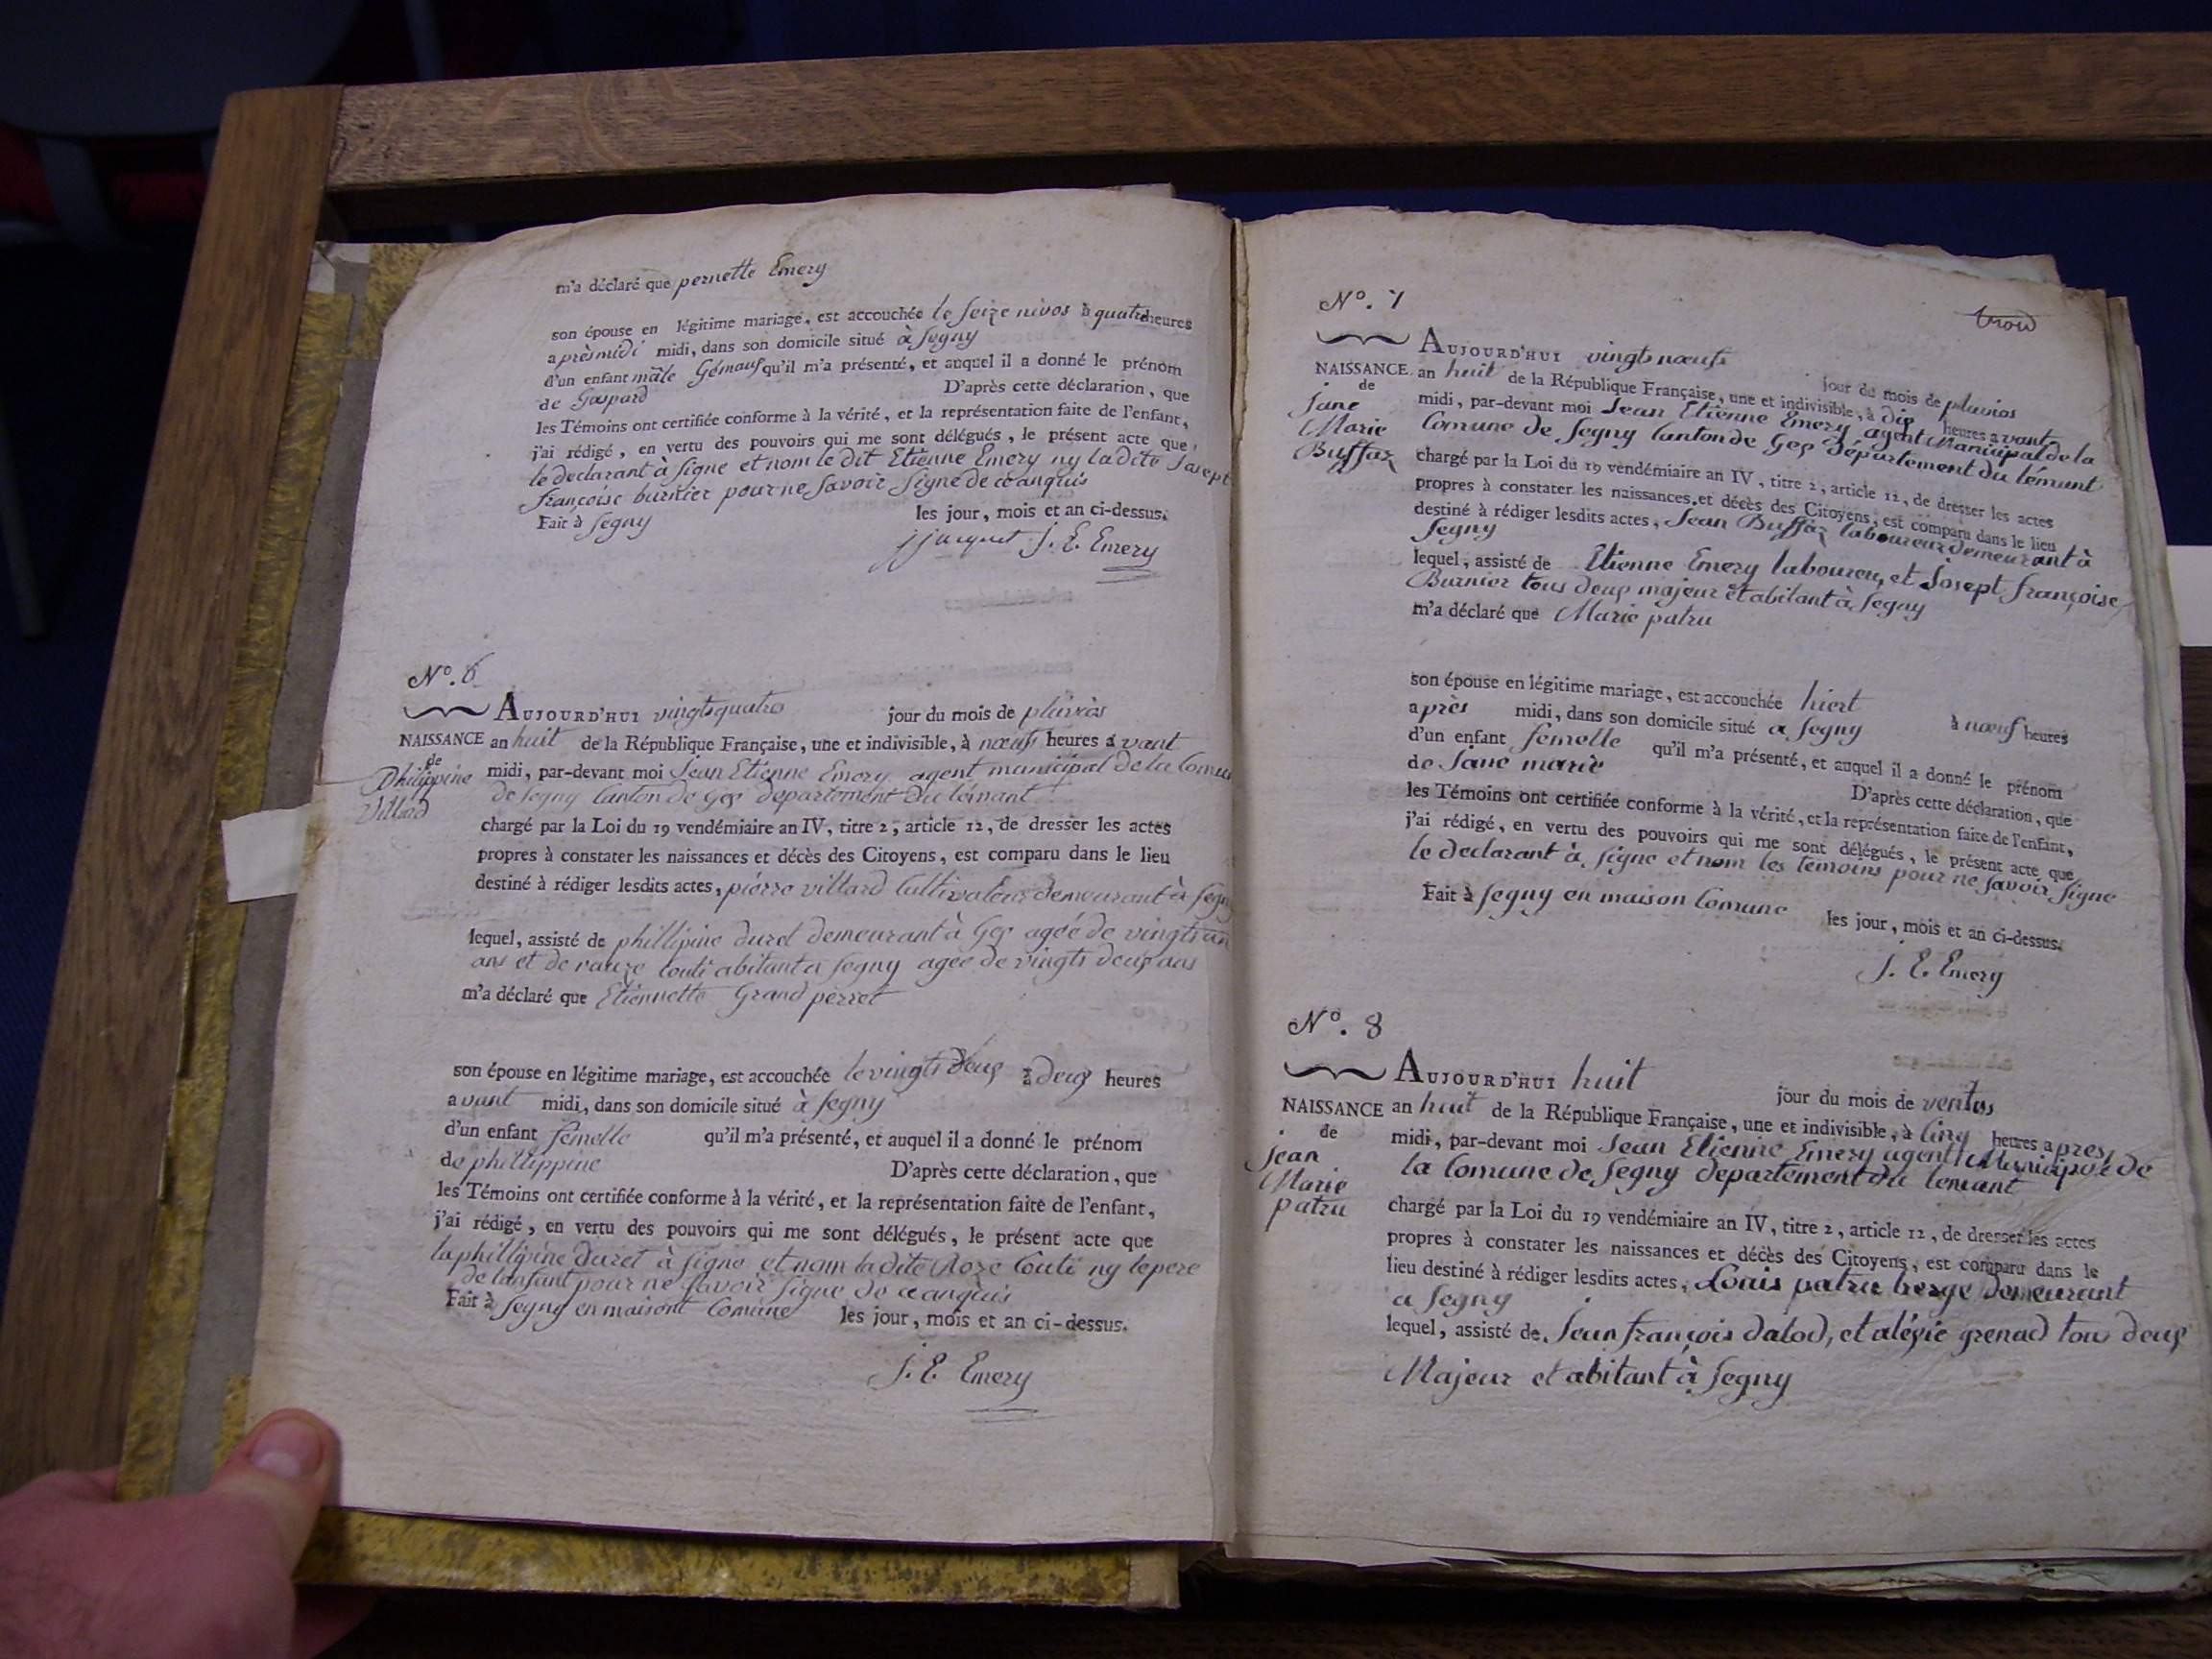 m'a déclaré que pernette Emery
son épouse en légitime mariage, est accouchée le seize nivos à quatre heures
après midi midi, dans son domicile situé à Segny
d'un enfant mâle Gémauf qu'il m'a présenté, et auquel il a donné le prénom
de Gaspard D'après cette déclaration, que
les Témoins ont certifiée conforme à la vérité, et la représentation faite de l'enfant,
j'ai rédigé, en vertu des pouvoirs qui me sont délégués, le présent acte que
le declarant à signe et nom le dit Etienne Emery ny la dite Josept
françoise burnier pour ne savoir signe de ce anquis
Fait à Segny les jour, mois et an ci-dessus.
j jacquet J. E. Emery
N°. 6
AUJOURD'HUI vingts quatre jour du mois de pluvios
NAISSANCE an huit de la République Française, une et indivisible, à nœufs heures avant
de
Philippine
Villard
midi, par-devant moi Jean Etienne Emery agent municipal de la Comu
de Segny Canton de Gex departement du lémant
chargé par la Loi du 19 vendémiaire an IV, titre 2, article 12, de dresser les actes
propres à constater les naissances et décès des Citoyens, est comparu dans le lieu
destiné à rédiger lesdits actes, pierre villard Cultivateur demeurant à Segny
lequel, assisté de phillipine duret demeurant à Gex agée de vingts un
ans et de rauze Couti abitant a Segny agée de vingts deux ans
m'a déclaré que Etiennette Grand perret
son épouse en légitime mariage, est accouchée le vingts deux à deux heures
avant midi, dans son domicile situé à Segny
d'un enfant femelle qu'il m'a présenté, et auquel il a donné le prénom
de phillippine D'après cette déclaration, que
les Témoins ont certifiée conforme à la vérité, et la représentation faite de l'enfant,
j'ai rédigé, en vertu des pouvoirs qui me sont délégués, le présent acte que
la phillipine duret à signe et nom la dite Roze Couti ny le pere
de lanfant pour ne savoir signe de ce anquis
Fait à Segny en maisont Comune les jour, mois et an ci-dessus.
J. E. Emery
N°. 7
trois
AUJOURD'HUI vingts nœufs jour du mois de pluvios
NAISSANCE an huit de la République Française, une et indivisible, à dix heures avant
de
jane
Marie
Buffaz
midi, par-devant moi Jean Etienne Emery agent Municipal de la
Comune de Segny Canton de Gex département du lémant
chargé par la Loi du 19 vendémiaire an IV, titre 2, article 12, de dresser les actes
propres à constater les naissances et décès des Citoyens, est comparu dans le lieu
destiné à rédiger lesdits actes, Jean Buffaz laboureur demeurant à
Segny
lequel, assisté de Etienne Emery laboureur, et Josept françoise
Burnier tous deux majeur et abitant à Segny
m'a déclaré que Marie patru
son épouse en légitime mariage, est accouchée hiert à nœuf heures
après midi, dans son domicile situé a Segny
d'un enfant femelle qu'il m'a présenté, et auquel il a donné le prénom
de Jane marie D'après cette déclaration, que
les Témoins ont certifiée conforme à la vérité, et la représentation faite de l'enfant,
j'ai rédigé, en vertu des pouvoirs qui me sont délégués, le présent acte que
le declarant à signe et nom les temoins pour ne savoir signe
Fait à Segny en maison Comune les jour, mois et an ci-dessus.
J. E. Emery
N°. 8
AUJOURD'HUI huit jour du mois de ventos
NAISSANCE an huit de la République Française, une et indivisible, à Cinq heures apres
de
jean
Marie
patru
midi, par-devant moi Jean Etienne Emery agent Municipal de
la Comune de Segny departement du lemant
chargé par la Loi du 19 vendémiaire an IV, titre 2, article 12, de dresser les actes
propres à constater les naissances et décès des Citoyens, est comparu dans le
lieu destiné à rédiger lesdits actes, Louis patru berge demeurant
a Segny
lequel, assisté de Jean françois dalod, et alexie grenad tous deux
Majeur et abitant à Segny